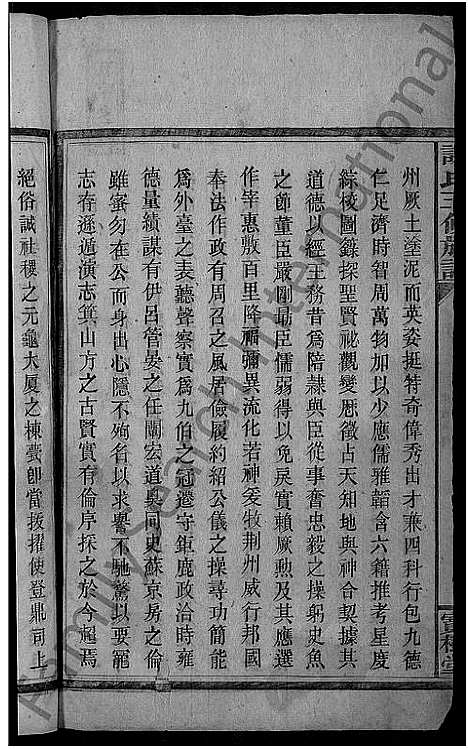 州厥土塗泥而英姿挺特奇偉秀出才兼四科行包九德
仁足濟時智周萬物加以少應儒雅韜含六籍推考星度
綜校圖籙探聖賢祕觀變歷徵占天知地與神合契據其
道德以經王務昔為陪隸與臣從事奮忠毅之操躬史魚
之節董臣嚴剛勗臣懦弱得以免戾實賴厥勳及其應選
作宰惠敷百里降福彌異流化若神爰牧荆州威行邦國
奉法作政有周召之風居儉履約紹公儀之操尋功簡能
為外臺之表聽聲察實為九伯之冠遷守鉅鹿政洽時雍
德量績謀有伊呂管晏之任闡宏道奧同史蘇京房之倫
雖密勿在公而身出心隱不殉名以求譽不馳騖以要寵
志存遜遁演志箕山方之古賢實有倫序採之於今超焉
絕俗誠社稷之元龜大廈之棟甍卽當拔擢使登鼎司上
氏三修族譜
FamilySearch International